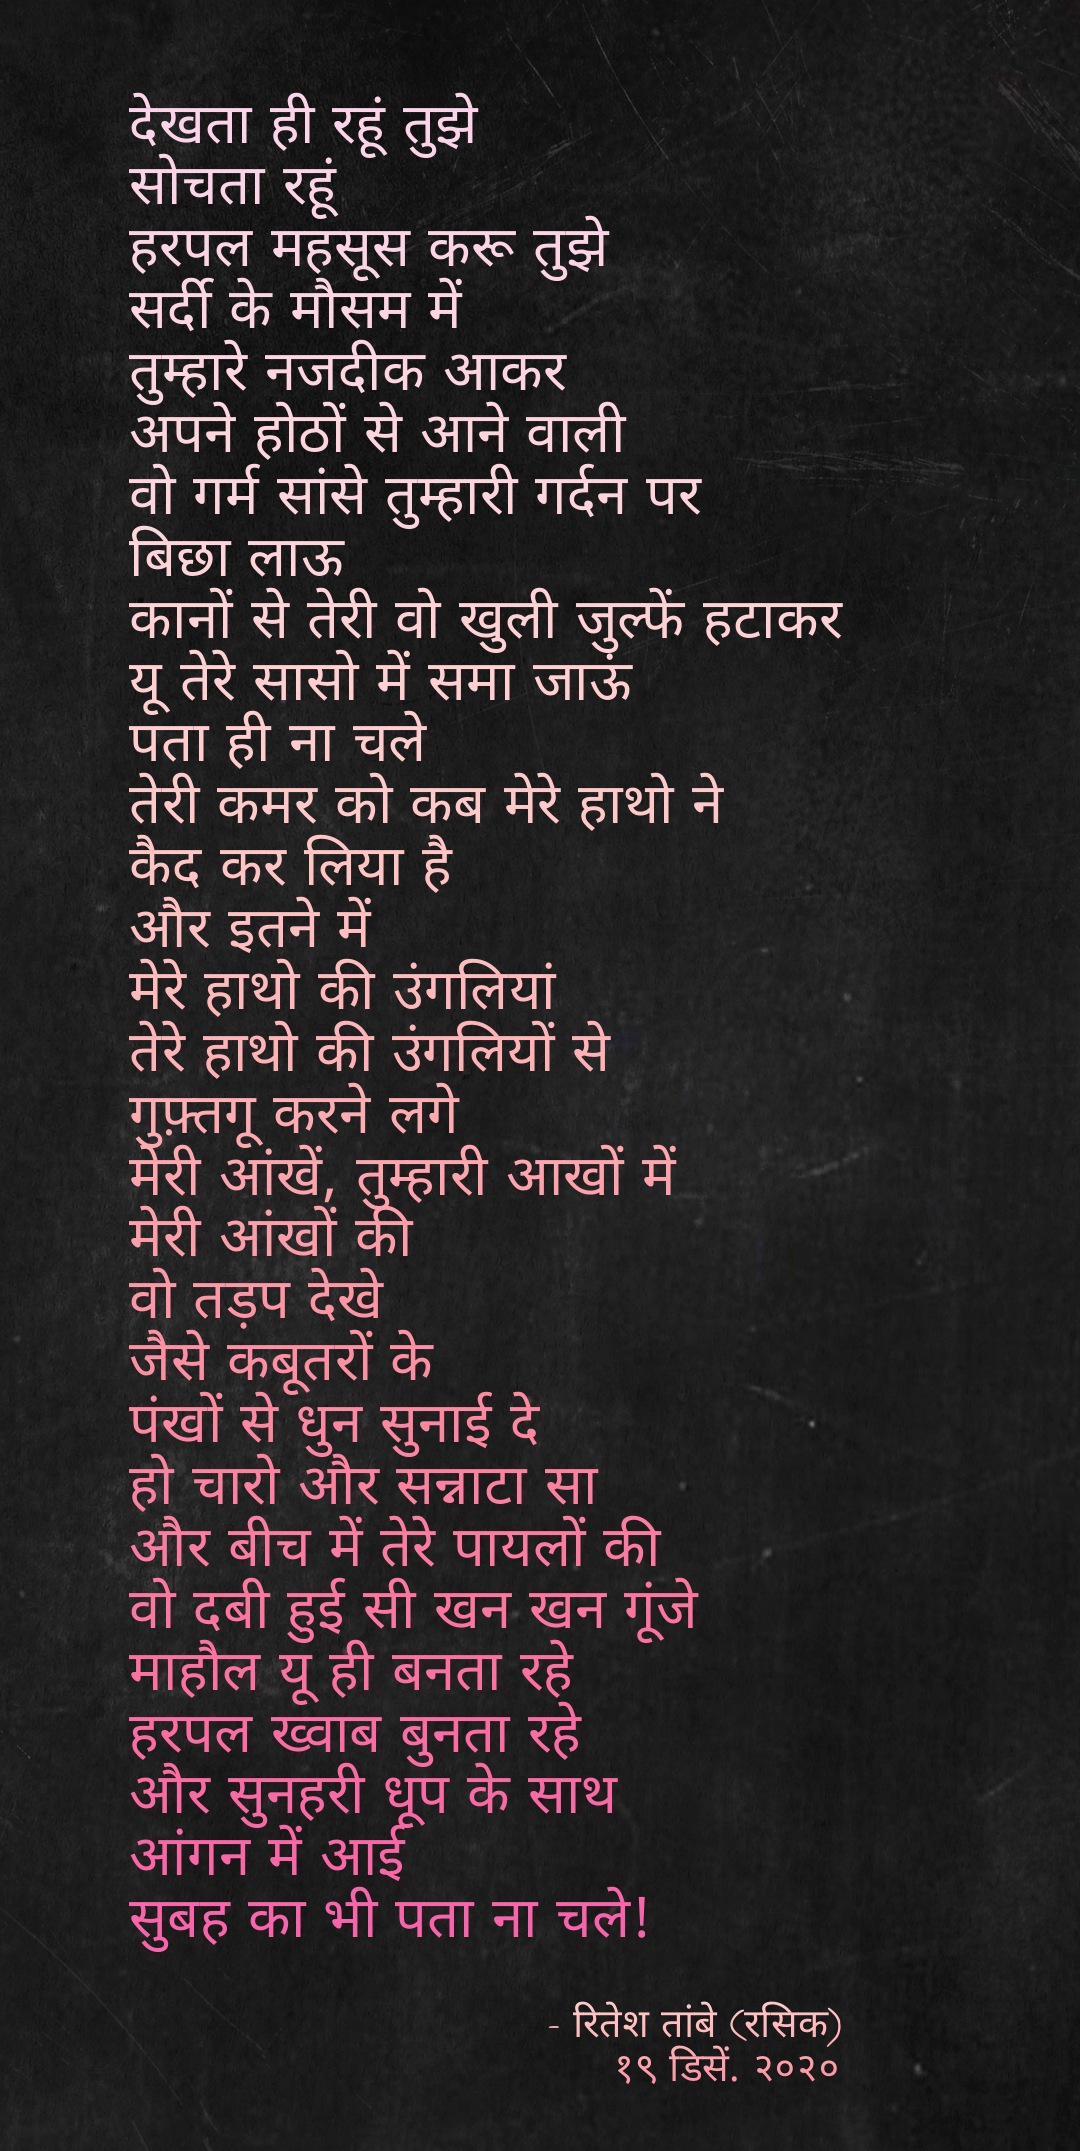 देखता ही रहूं तुझे
सोचता रहूं
हरपल महसूस करू तुझे
सर्दी के मौसम में
तुम्हारे नजदीक आकर
अपने होठों से आने वाली
वो गर्म सांसे तुम्हारी गर्दन पर
बिछा लाऊ
कानों से तेरी वो खुली जुल्फें हटाकर
यू तेरे सासो में समा जाऊं
पता ही ना चले
तेरी कमर को कब मेरे हाथो ने
कैद कर लिया है
और इतने में
मेरे हाथो की उंगलियां
तेरे हाथो की उंगलियों से
गुफ़्तगू करने लगे
मेरी आंखें, तुम्हारी आखों में
मेरी आंखों की
वो तड़प देखे
जैसे कबूतरों के
पंखों से धुन सुनाई दे
हो चारो और सन्नाटा सा
और बीच में तेरे पायलों की
वो दबी हुई सी खन खन गूंजे
माहौल यू ही बनता रहे
हरपल ख्वाब बुनता रहे
और सुनहरी धूप के साथ
आंगन में आई
सुबह का भी पता ना चले!
- रितेश तांबे (रसिक)
१९ डिसें. २०२०